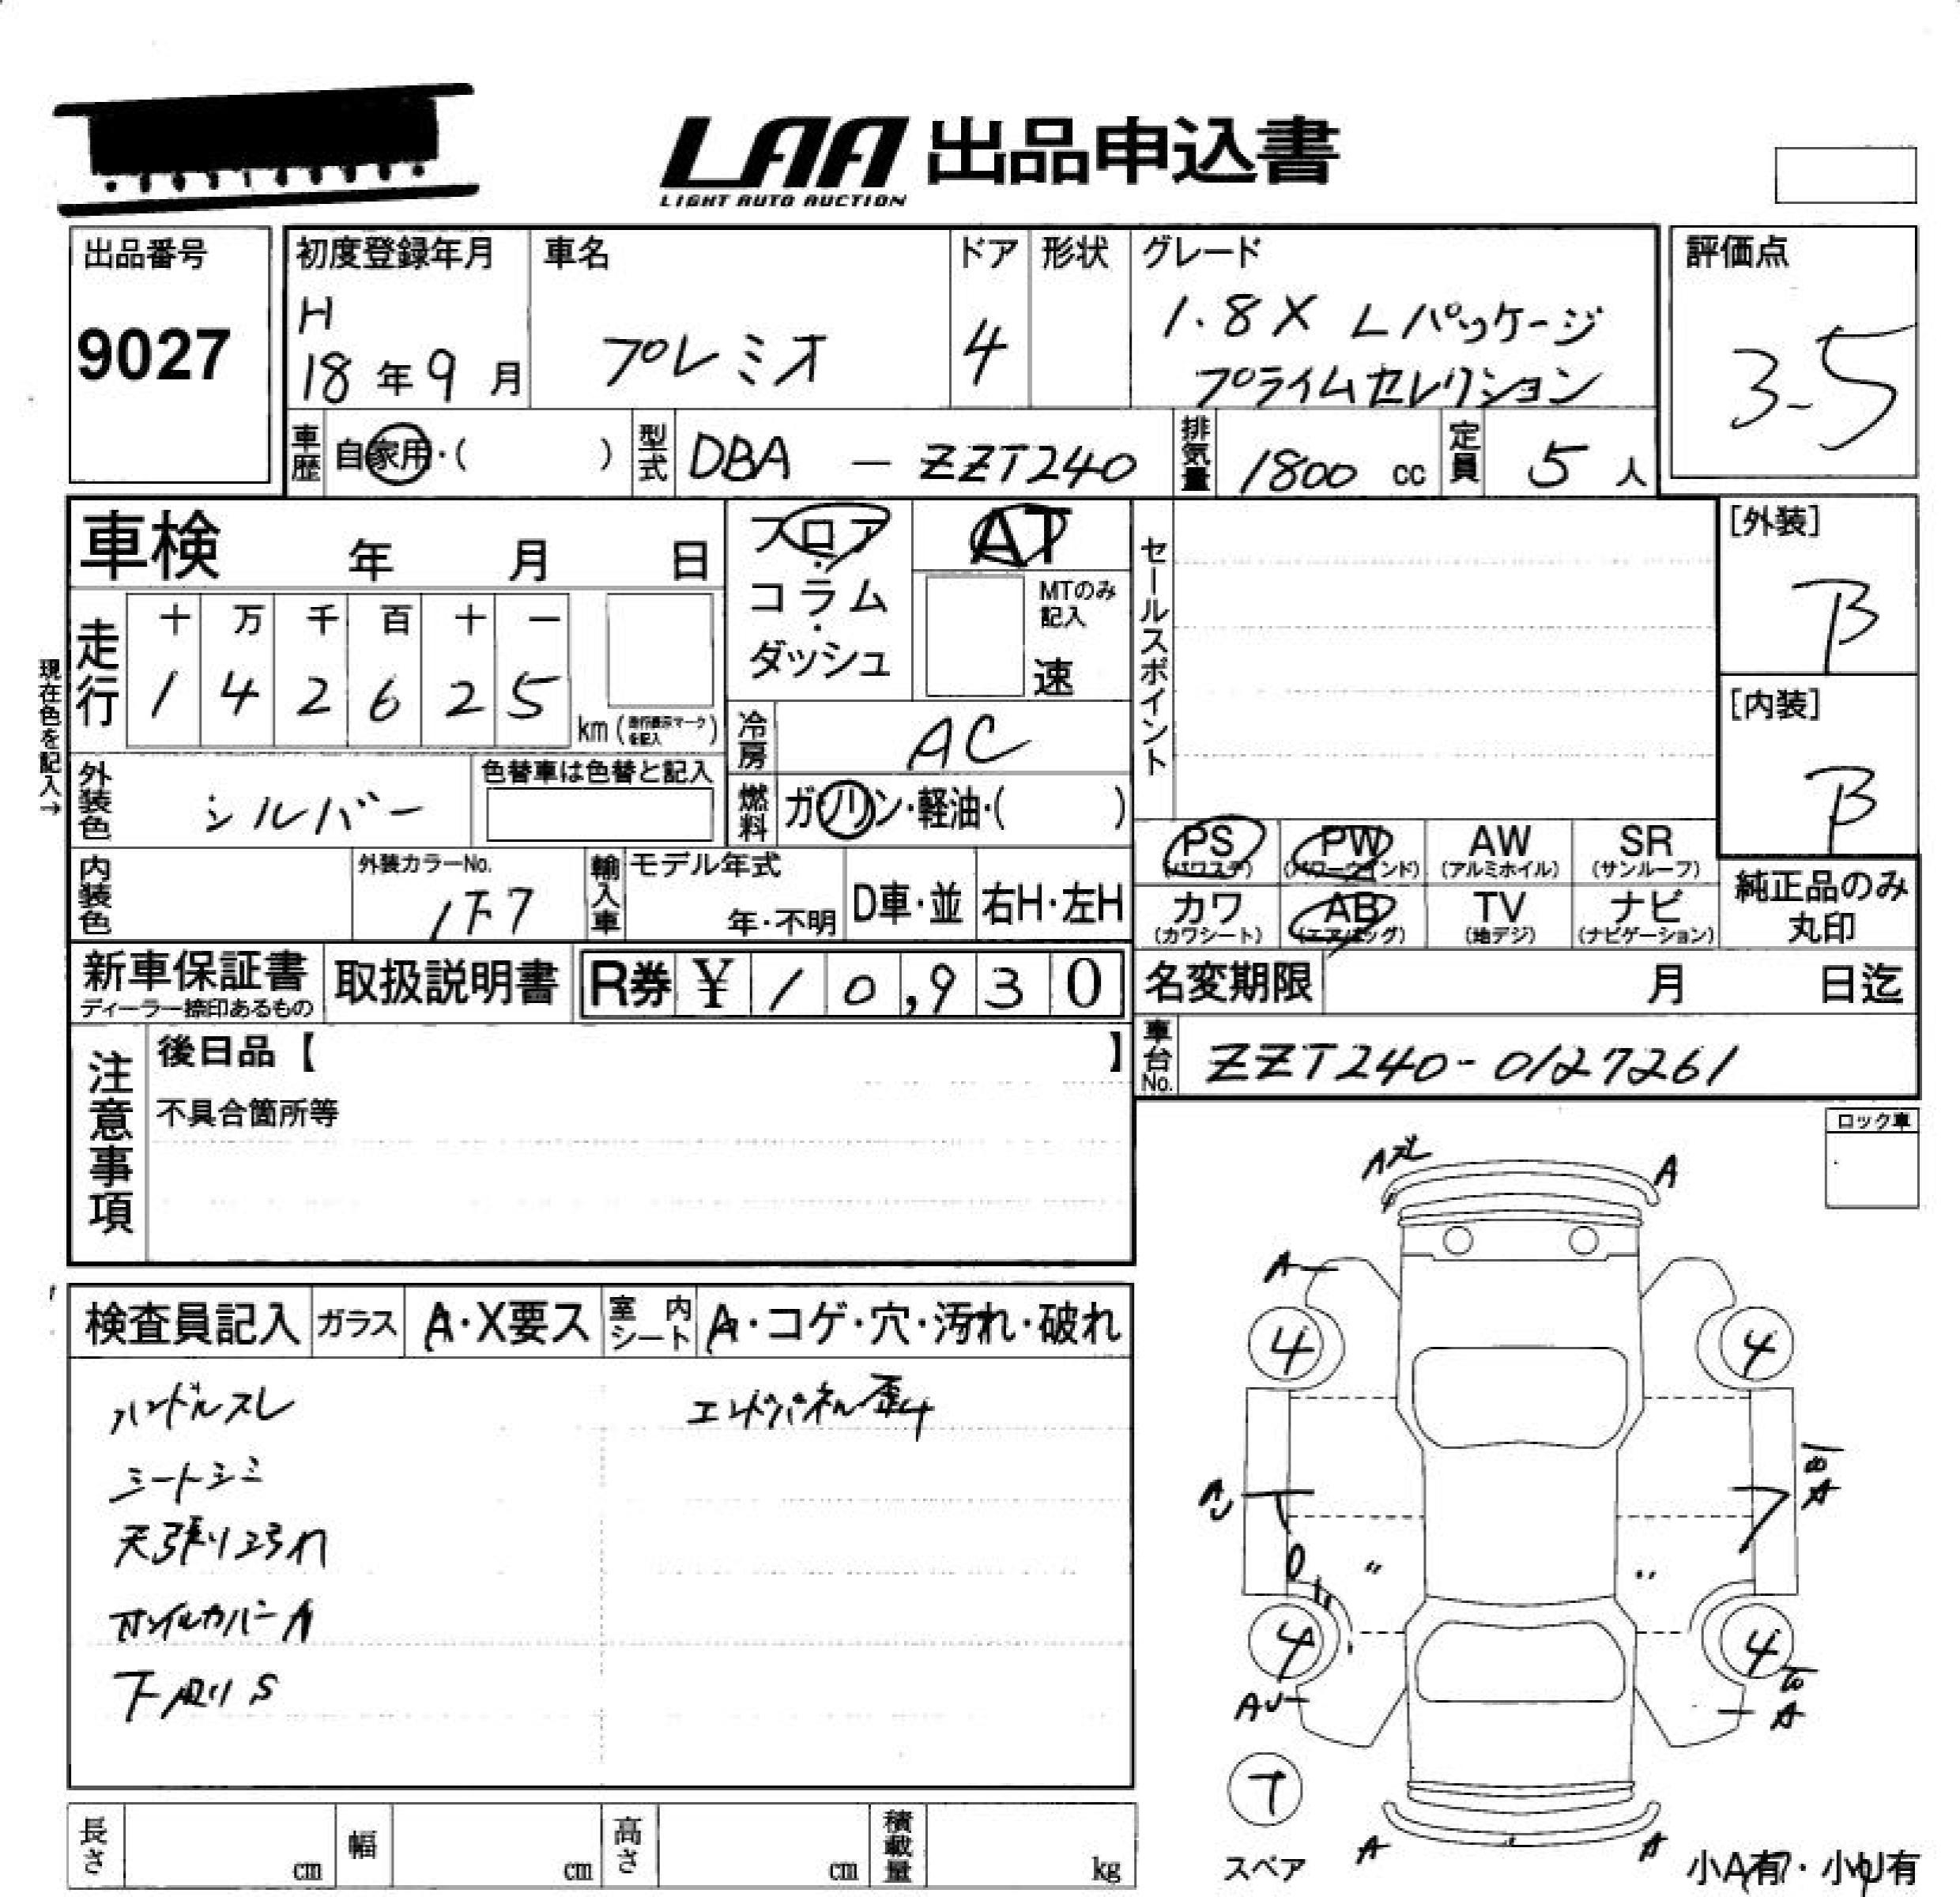 LAA 出品申込書
LIGHT AUTO AUCTION
出品番号
9027
初度登録年月
H
18年9月
車名
プレミオ
ドア
4
形状
グレード
1.8X Lパッケージ
プライムセレクション
評価点
3.5
車歴
自家用・( )
型式
DBA - ZZT240
排気量
1800 cc
定員
5 人
車検 年 月 日
フロア
・
コラム
・
ダッシュ
AT
MTのみ
記入
速
セールスポイント
[外装]
B
[内装]
B
現在色を記入→
走行
十 万 千 百 十 一
1 4 2 6 2 5
km (走行表示マークを記入)
冷房
AC
外装色
シルバー
色替車は色替と記入
燃料
ガソリン・軽油・( )
PS
(パワステ)
PW
(パワーウインド)
AW
(アルミホイル)
SR
(サンルーフ)
内装色
外装カラーNo.
1F7
輸入車
モデル年式
年・不明
D車・並
右H・左H
カワ
(カワシート)
AB
(エアバッグ)
TV
(地デジ)
ナビ
(ナビゲーション)
純正品のみ
丸印
新車保証書
ディーラー捺印あるもの
取扱説明書
R券 ¥ 10,930
名変期限 月 日迄
注意事項
後日品【 】
不具合箇所等
車台No.
ZZT240-0127261
ロック車
検査員記入
ガラス
A・X要ス
室内シート
A・コゲ・穴・汚れ・破れ
ハンドルスレ
シートシミ
天張り汚れ
下廻りS
エンドパネル歪み
Aズレ
A
A
4
4
AU
A
4
4
AU
A
スペア
A
A
小A有・小U有
長さ cm
幅 cm
高さ cm
積載量 kg